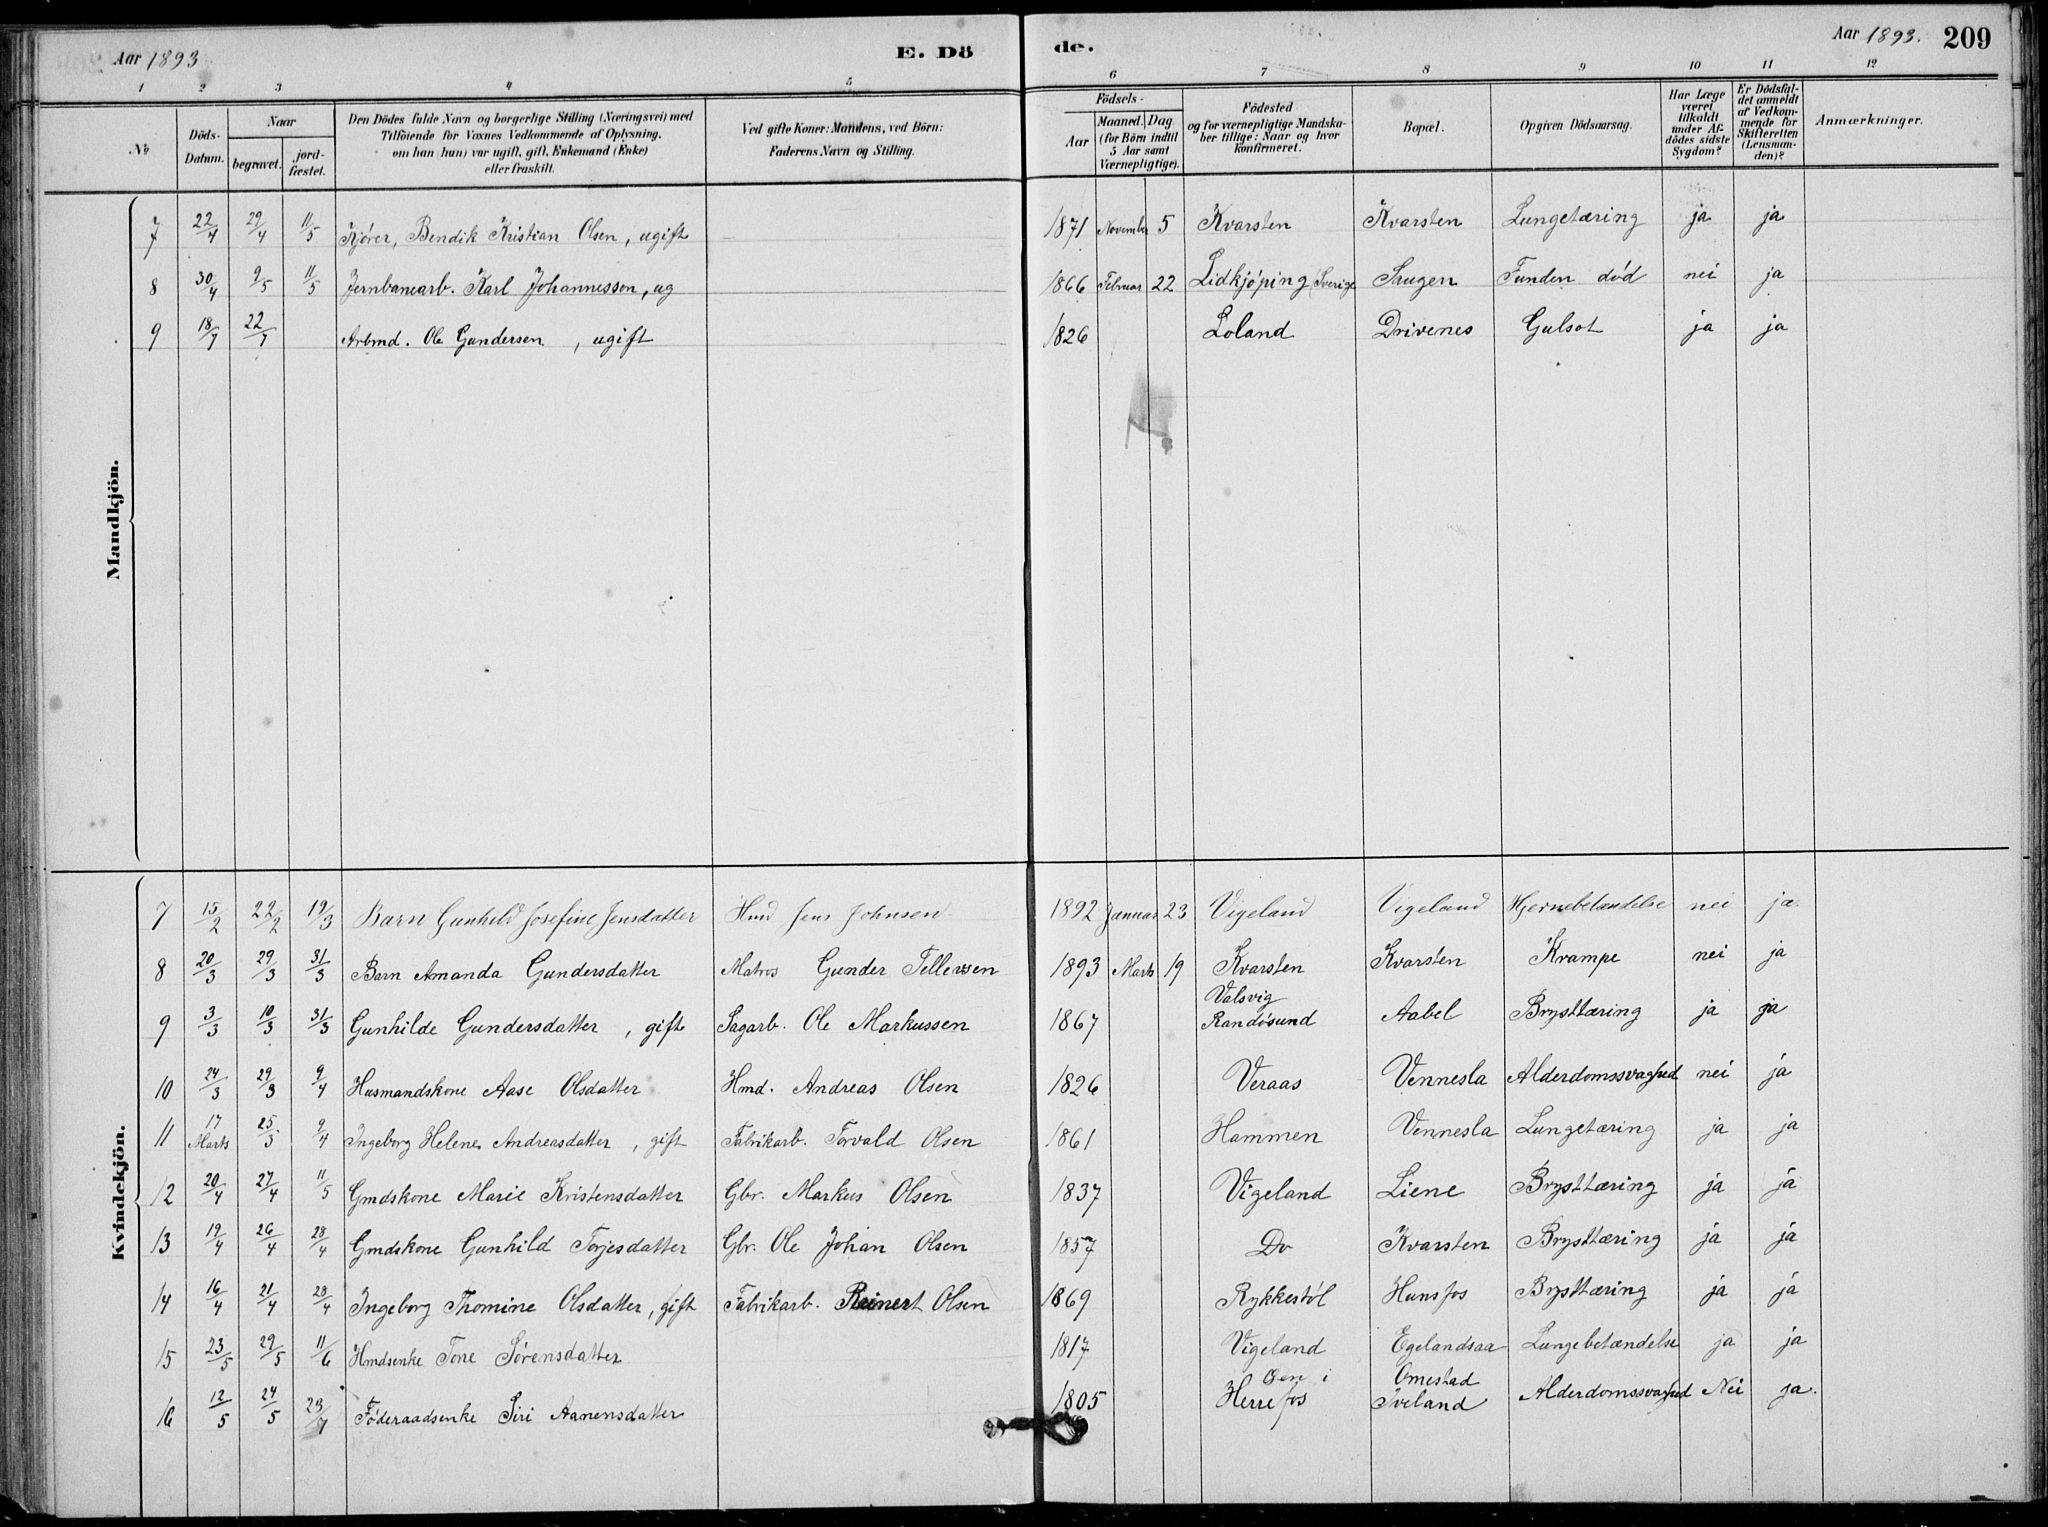 Aar 1893 E. Dö de. Aar 1893. 209
1 2 3 4 5 6 7 8 9 10 11 12
No
Döds-Datum.
Naar
begravet.
jordfæstet.
Den Dödes fulde Navn og borgerlige Stilling (Næringsvei) med
Tilföiende for Voxnes Vedkommende af Oplysning,
om han (hun) var ugift, gift, Enkemand (Enke)
eller fraskilt.
Ved gifte Koner: Mandens, ved Börn:
Faderens Navn og Stilling.
Födsels-
Aar
Maaned. Dag
(for Börn indtil
5 Aar samt
Værnepligtige).
Födested
og for værnepligtige Mandska-
ber tillige: Naar og hvor
konfirmeret.
Bopæl.
Opgiven Dödsaarsag.
Har Læge
været
tilkaldt
under Af-
dödes sidste
Sygdom?
Er Dödsfal-
det anmeldt
af Vedkom-
mende for
Skifteretten
(Lensman-
den)?
Anmærkninger.
Mandkjön.
7 22/4 29/4 11/5 Kjører, Bendik Kristian Olsen, ugift 1871 November 5 Kvarsten Kvarsten Lungetæring ja ja
8 30/4 9/5 11/5 Jernbanearb. Karl Johannesson, ug 1866 Februar 22 Lidkjøping (Sverige Saugen Funden død nei ja
9 18/7 22/7 Arbmd. Ole Gundersen, ugift 1826 Loland Drivenes Gulsot ja ja
Kvindekjön.
7 15/2 22/2 19/3 Barn Gunhild Josefine Jensdatter Hmd Jens Johnsen 1892 Januar 23 Vigeland Vigeland Hjernebetændelse nei ja.
8 20/3 29/3 31/3 Barn Amanda Gundersdatter Matros Gunder Tellevsen 1893 Marts 19 Kvarsten Kvarsten Krampe nei ja
9 3/3 10/3 31/3 Gunhilde Gundersdatter, gift Sagarb. Ole Markussen 1867 Valsvig Randøsund Aabel Brysttæring ja ja
10 24/3 29/3 9/4 Husmandskone Aase Olsdatter Hmd. Andreas Olsen 1826 Veraas Vennesla Alderdomssvaghed nei ja
11 17 Marts 25/3 9/4 Ingeborg Helene Andreasdatter, gift Fabrikarb. Torvald Olsen 1861 Hammen Vennesla Lungetæring ja ja
12 20/4 27/4 11/5 Gmdskone Marie Kristensdatter Gbr. Markus Olsen 1837 Vigeland Liene Brysttæring ja ja
13 19/4 26/4 28/4 Gmdskone Gunhild Torjesdatter Gbr. Ole Johan Olsen 1857 Do Kvarsten Brysttæring ja ja
14 16/4 21/4 28/4 Ingeborg Thomine Olsdatter, gift Fabrikarb. Reinert Olsen 1869 Rykkestøl Hunsfos Brysttæring ja ja
15 23/5 29/5 11/6 Hmdsenke Tone Sørensdatter 1817 Vigeland Egelandsaa Lungebetændelse ja ja
16 12/5 24/5 23/7 Føderaadsenke Siri Aanensdatter 1805 i Herrefos Omestad Iveland Alderdomssvaghed Nei ja.